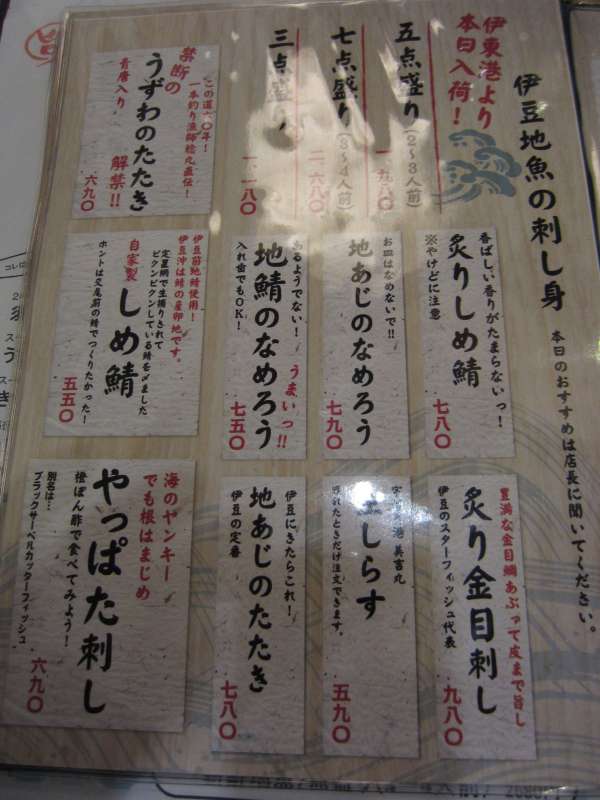 伊豆地魚の刺し身
本日のおすすめは店長に聞いてください。
伊東港より
本日入荷!
五点盛り(2〜3人前)
一、九八〇
七点盛り(3〜4人前)
二、六八〇
三点盛り
一、一八〇
この道六〇年!
一本釣り漁師稔丸直伝!
禁断の
うずわのたたき
青唐入り
解禁!!
六九〇
香ばしい香りがたまらないっ!
炙りしめ鯖
※やけどに注意
七八〇
お皿はなめないで!!
地あじのなめろう
七九〇
あるようでない!
うまいっ!!
地鯖のなめろう
入れ歯でもOK!
七五〇
伊豆前地鯖使用!
伊豆沖は鯖の産卵地です。
自家製
しめ鯖
定置網で生捕りされて
ピクンピクンしている鯖を〆ました
ホントは交尾前の鯖でつくりたかった!
五五〇
豊満な金目鯛あぶって皮まで旨し
炙り金目刺し
伊豆のスターフィッシュ代表
九八〇
美吉丸
しらす
浮れたときだけ注文できます。
五九〇
伊豆にきたらこれ!
地あじのたたき
伊豆の定番
七八〇
海のヤンキー
でも根はまじめ
やっぱた刺し
橙ぽん酢で食べてみよう!
別名は…
ブラックサーベルカッターフィッシュ
六九〇